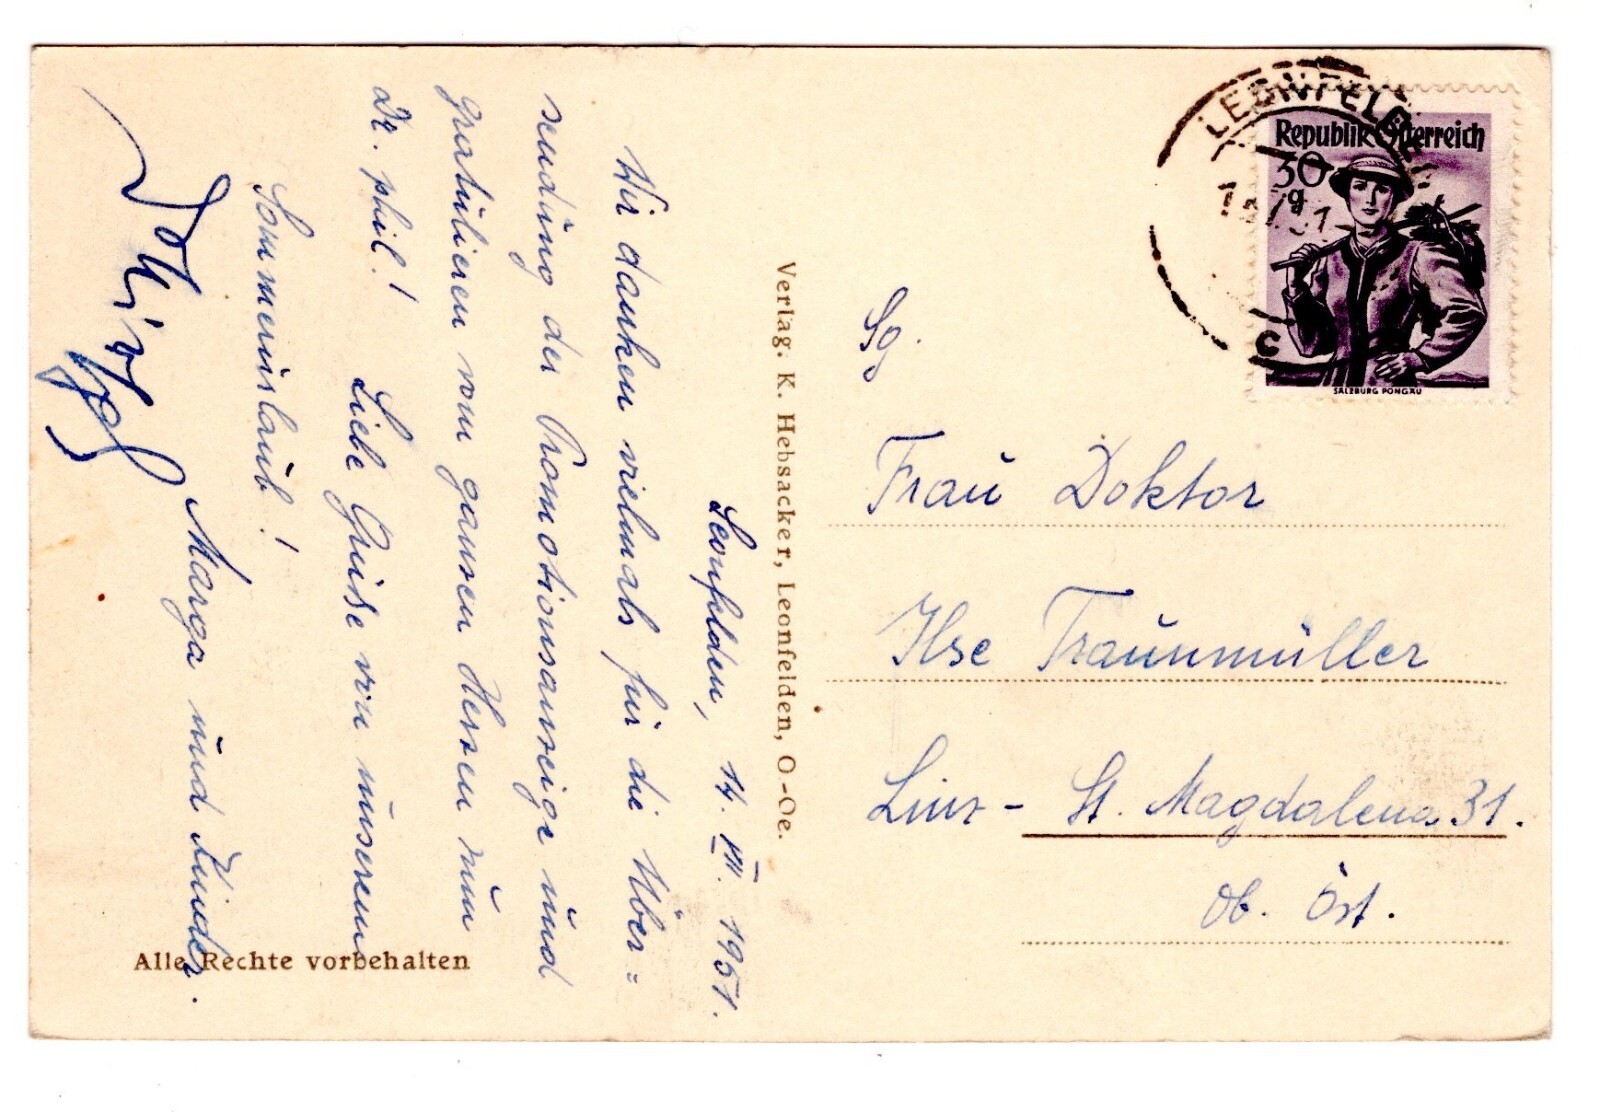 Leonfelden, 14. VII. 1951.
Wir danken vielmals für die Über=
sendung der Promotionsanzeige und
gratulieren von ganzen Herzen zum
Dr. phil.! Liebe Grüsse via unserem
Sommerurlaub!
Marga und Kinder.
Alle Rechte vorbehalten
Verlag: K. Hebsacker, Leonfelden, O-Oe.
LEONFELDEN
c
Republik Österreich
30
g
SALZBURG PONGAU
Sg.
Frau Doktor
Ilse Traunmüller
Linz - St. Magdalena 31.
Ob. Öst.